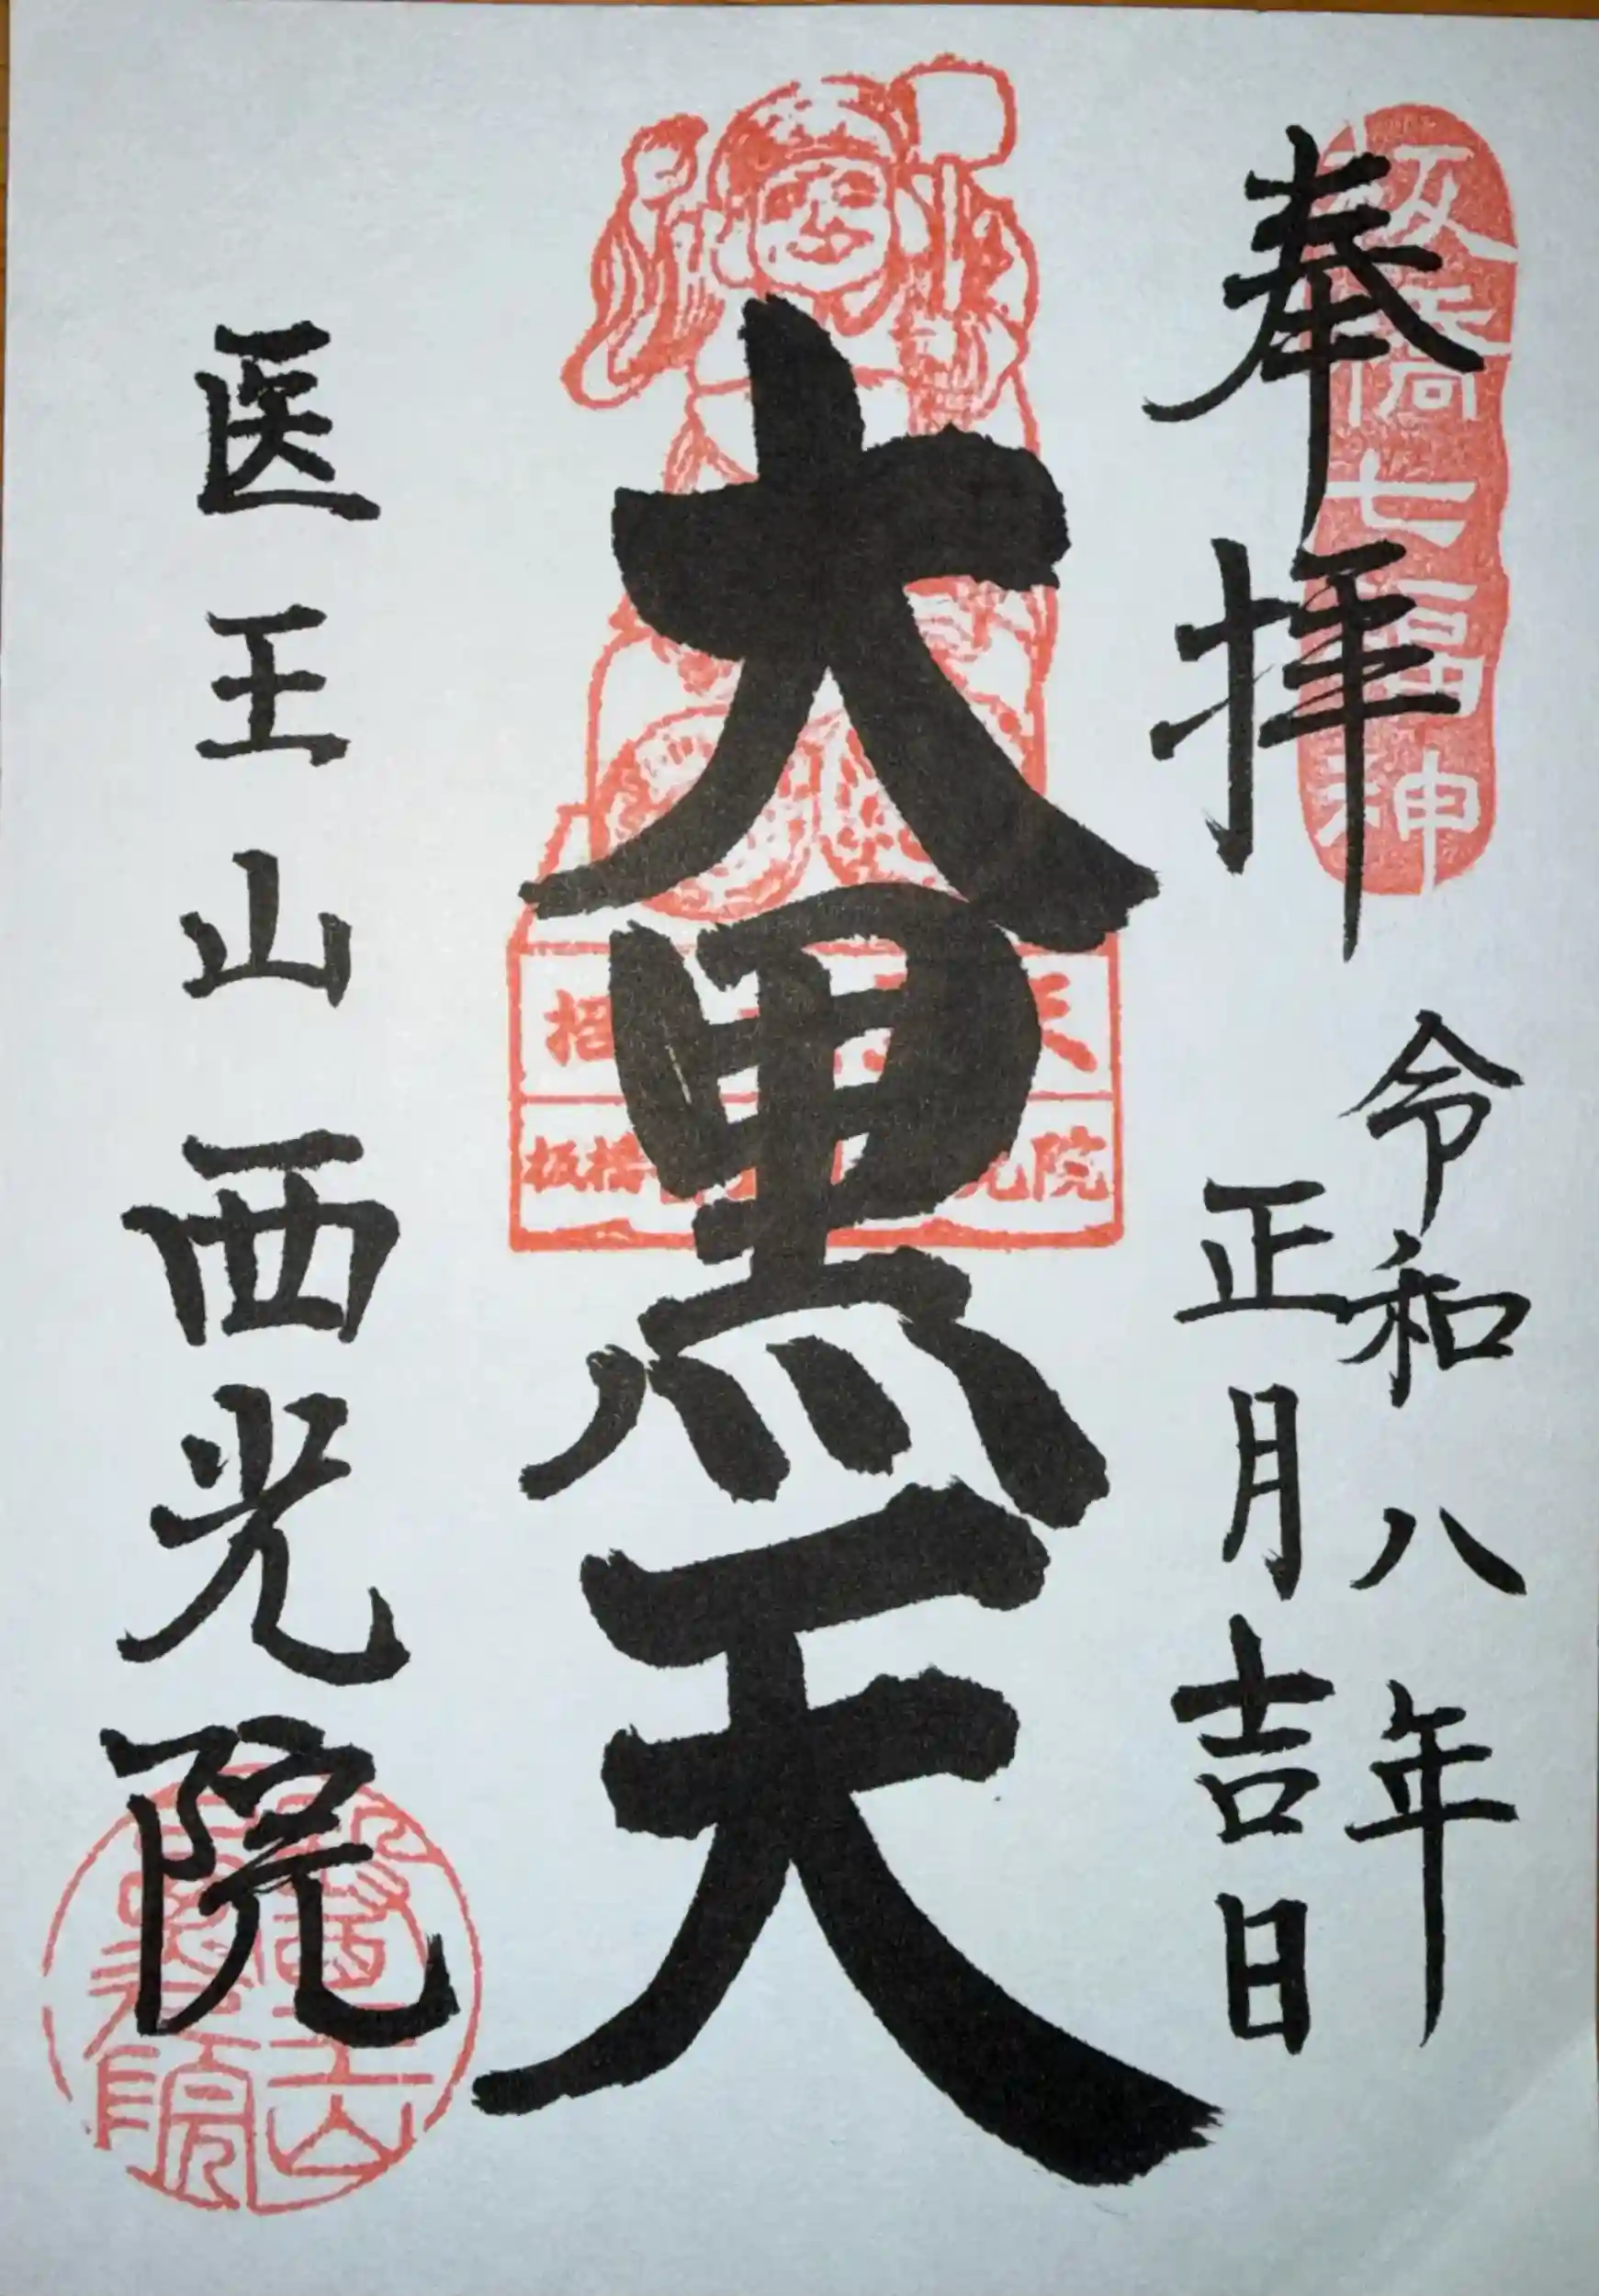 奉拝
板橋七福神
令和八年
正月吉日
大黒天
招 天
板橋 光院
医王山西光院